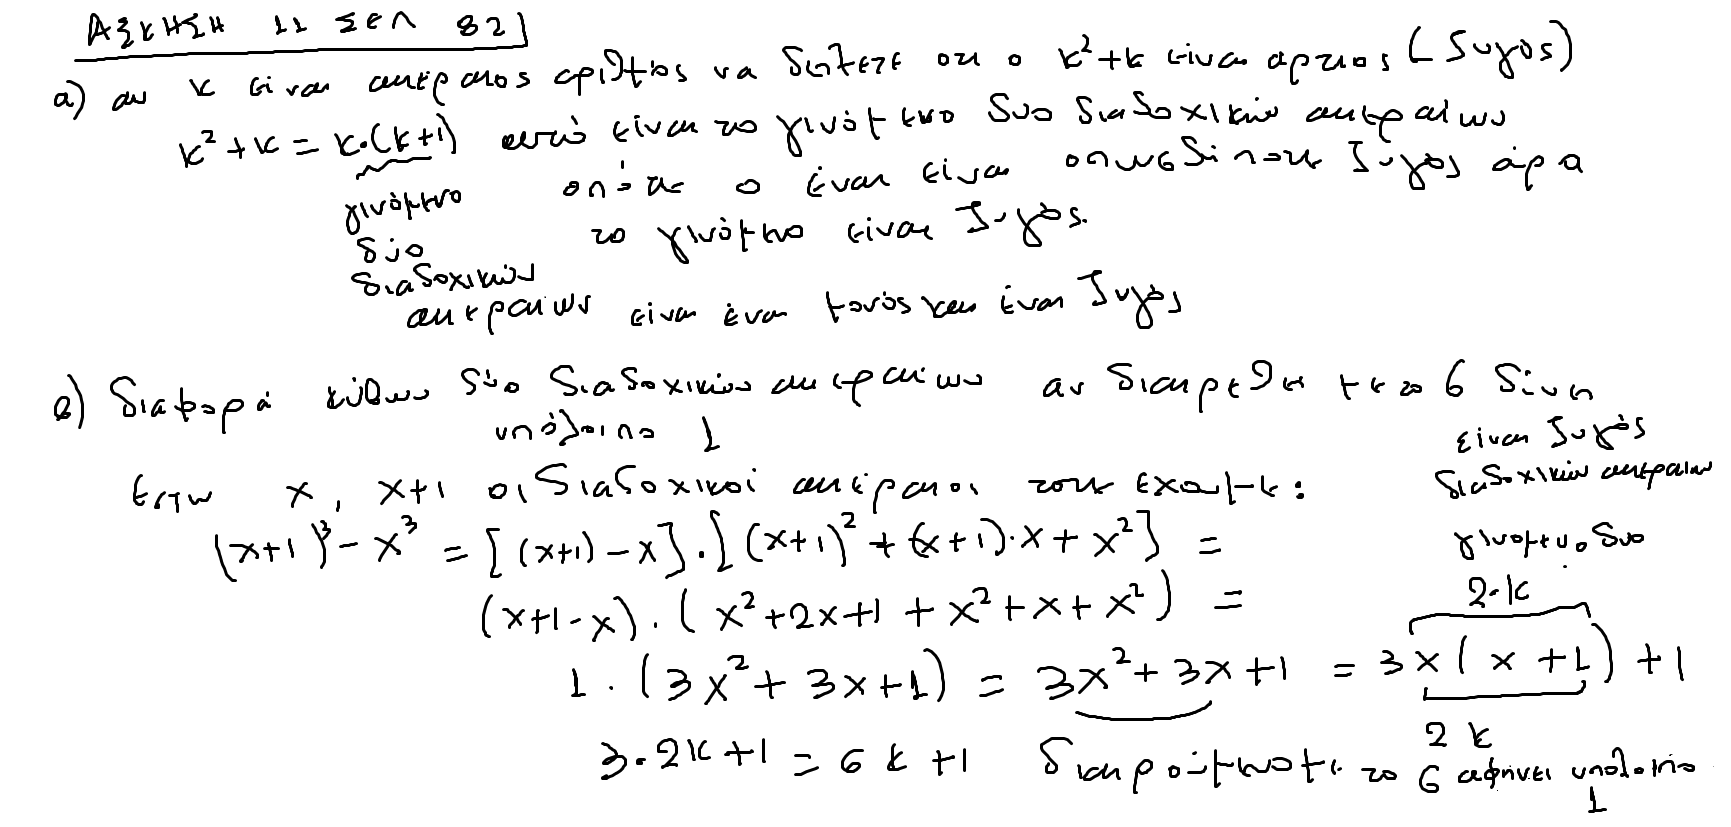 ΑΣΚΗΣΗ 11 ΣΕΛ 82
α) αν κ είναι ακέραιος αριθμός να δείξετε οτι ο κ²+κ είναι αρτιος (ζυγός)
κ²+κ = κ·(κ+1) αυτό είναι το γινόμενο δυο διαδοχικών ακεραίων
γινόμενο δύο διαδοχικών ακεραίων
οπότε ο ένας είναι οπωσδήποτε ζυγός άρα
το γινόμενο είναι ζυγός.
είναι ένας μονός και ένας ζυγός
β) διαφορά κύβων δύο διαδοχικών ακεραίων αν διαιρεθεί με το 6 δίνει
υπόλοιπο 1
Εστω x, x+1 οι διαδοχικοί ακέραιοι τοτε εχουμε:
(x+1)³ - x³ = [(x+1) - x]·[(x+1)² + (x+1)·x + x²] =
(x+1-x)·(x²+2x+1 + x²+x+x²) =
1·(3x²+3x+1) = 3x²+3x+1 = 3x(x+1)+1
είναι ζυγός
διαδοχικών ακεραίων
γινόμενο δυο
2·κ
2κ
3·2κ+1 = 6κ+1 διαιρούμενο με το 6 αφήνει υπόλοιπο
1